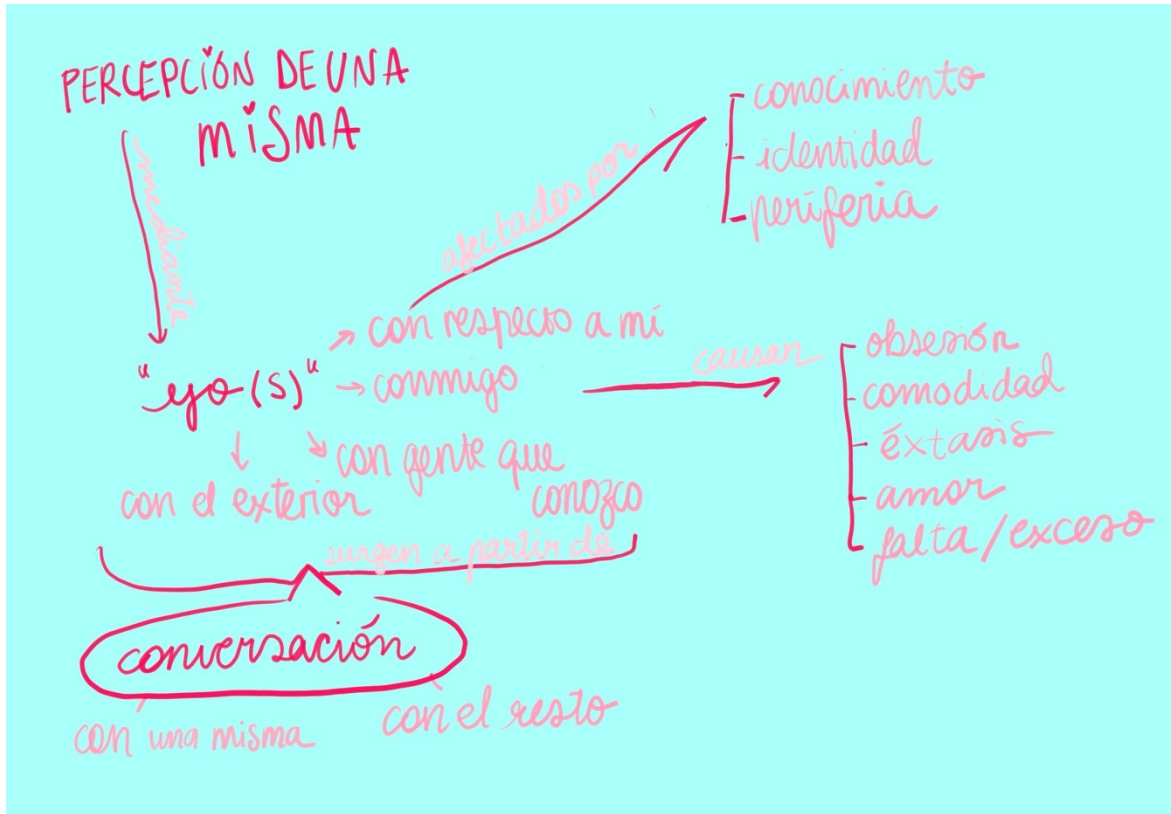 PERCEPCIÓN DE UNA
MISMA
mediante
"yo(s)"
→ con respecto a mí
→ conmigo
con gente que
conozco
con el exterior
afectados por
- conocimiento
- identidad
- periferia
causan
- obsesión
- comodidad
- éxtasis
- amor
- falta/exceso
surgen a partir de
conversación
con una misma
con el resto